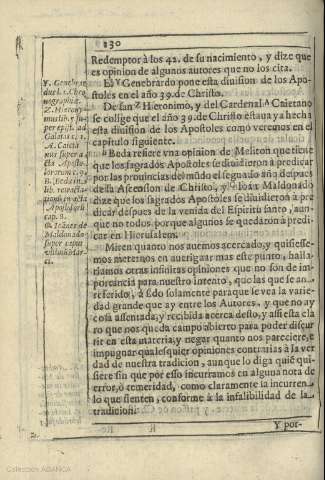 130
Redemptor à los 42. de su nacimiento, y dize que
es opinion de algunos autores que no los cita.
El Y Genebrardo pone esta division de los Apo-
stoles en el año 39. de Christo.
De san Z Hieronimo, y del Cardenal A Caietano
se colige que el año 39. de Christo estaua ya hecha
esta diuisiõ de los Apostoles como veremos en el
capitulo siguiente.
B Beda refiere vna opinion de Meliton que siente
que los sagrados Apostoles se diuidierõ à predicar
por las prouincias del mũdo el segundo año despues
de la Ascension de Christo, y Ioan Maldonado
dize que los sagrados Apostoles se diuidieron à pre
dicar despues de la venida del Espiritu santo, aun-
que no todos porque algunos se quedaron à predi-
car en Hierusalem.
Miren quanto nos auemos acercado, y quisiesse-
mos meternos en aueriguar mas este punto, halla-
riamos otras infinitas opiniones que no son de im-
portancia para nuestro intento, que las que se an
referido, à sido solamente para que se vea la varie-
dad grande que ay entre los Autores, y que no ay
cosa assentada, y recibida acerca desto, y assi esta cla
ro que nos queda campo abierto para poder discur
rir en esta materia, y negar quanto nos pareciere, e
impugnar qualesquier opiniones contrarias à la ver
dad de nuestra tradicion, aunque lo diga quiẽ qui-
siere sin que por esso incurramos en alguna nota de
error, ò temeridad, como claramente la incurren
lo que sienten, conforme à la infalibilidad de la
tradicion.
Y por-
Y. Genebrar
due l. 1. Chro
nographiæ.
Z. Hierony
mus lib. 1. su
per epist. ad
Galatas c. 1.
A. Caieta
nus super a-
cta Aposto
lorum c. 9.
B. Beda in
lib. retractio
nis in acta
Apostolorũ
cap. 8.
Maldonado
super
Colección ABANCA